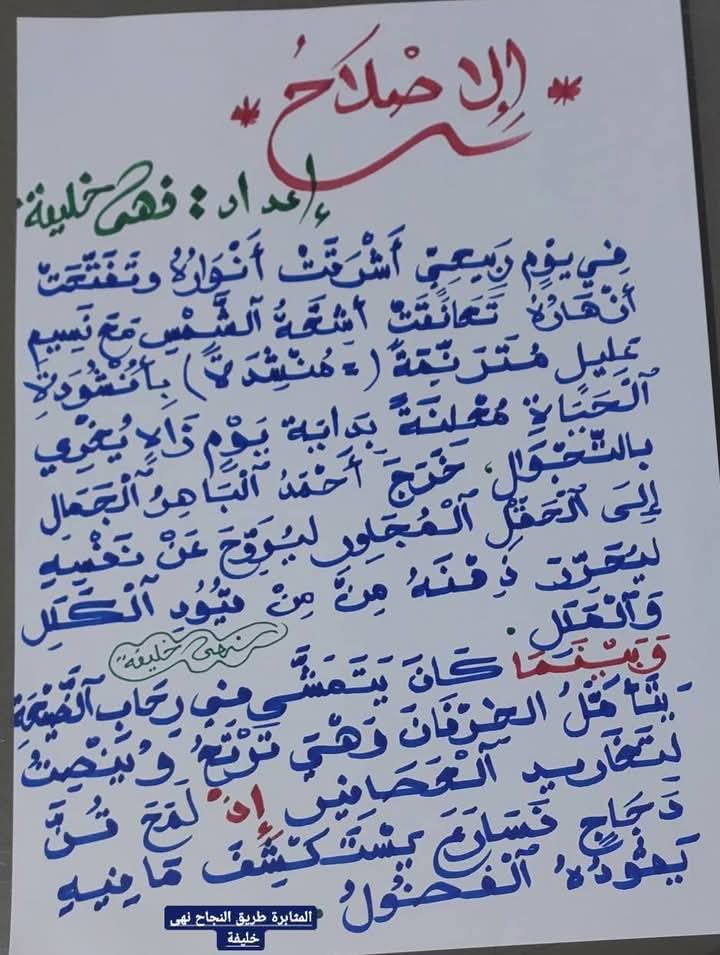 * إلا صلاح *
إعداد: نهى خليفة
فِي يَوْمٍ رَبِيعِيٍّ أَشْرَقَتْ أَنْوَارُهُ وَتَفَتَّحَتْ
أَزْهَارُهُ تَعَانَقَتْ أَشِعَّةُ الشَّمْسِ مَعَ نَسِيمٍ
عَلِيلٍ مُتَرَنِّمَةً (= مُنْشِدَةً) بِأُنْشُودَةِ
الْحَيَاةِ مُعْلِنَةً بِدَايَةَ يَوْمٍ زَاهٍ يُغْرِي
بِالتَّجْوَالِ، خَرَجَ أَحْمَدُ الْبَاهِرُ الْجَمَالِ
إِلَى الْحَقْلِ الْمُجَاوِرِ لِيُرَوِّحَ عَنْ نَفْسِهِ
لِيُحَرِّرَ ذِهْنَهُ مِنْ قُيُودِ الْكَلَلِ
وَالْمَلَلِ.
نهى خليفة
وَبَيْنَمَا كَانَ يَتَمَشَّى فِي رِحَابِ الضَّيْعَةِ
يَتَأَمَّلُ الخِرْفَانَ وَهْيَ تَرْتَعُ وَيُنْصِتُ
لِتَغَارِيدِ الْعَصَافِيرِ إِذْ لَمَحَ قُنَّ
دَجَاجٍ فَسَارَعَ يَسْتَكْشِفُ مَا فِيهِ
يَقُودُهُ الْفُضُولُ.
المثابرة طريق النجاح نهى
خليفة